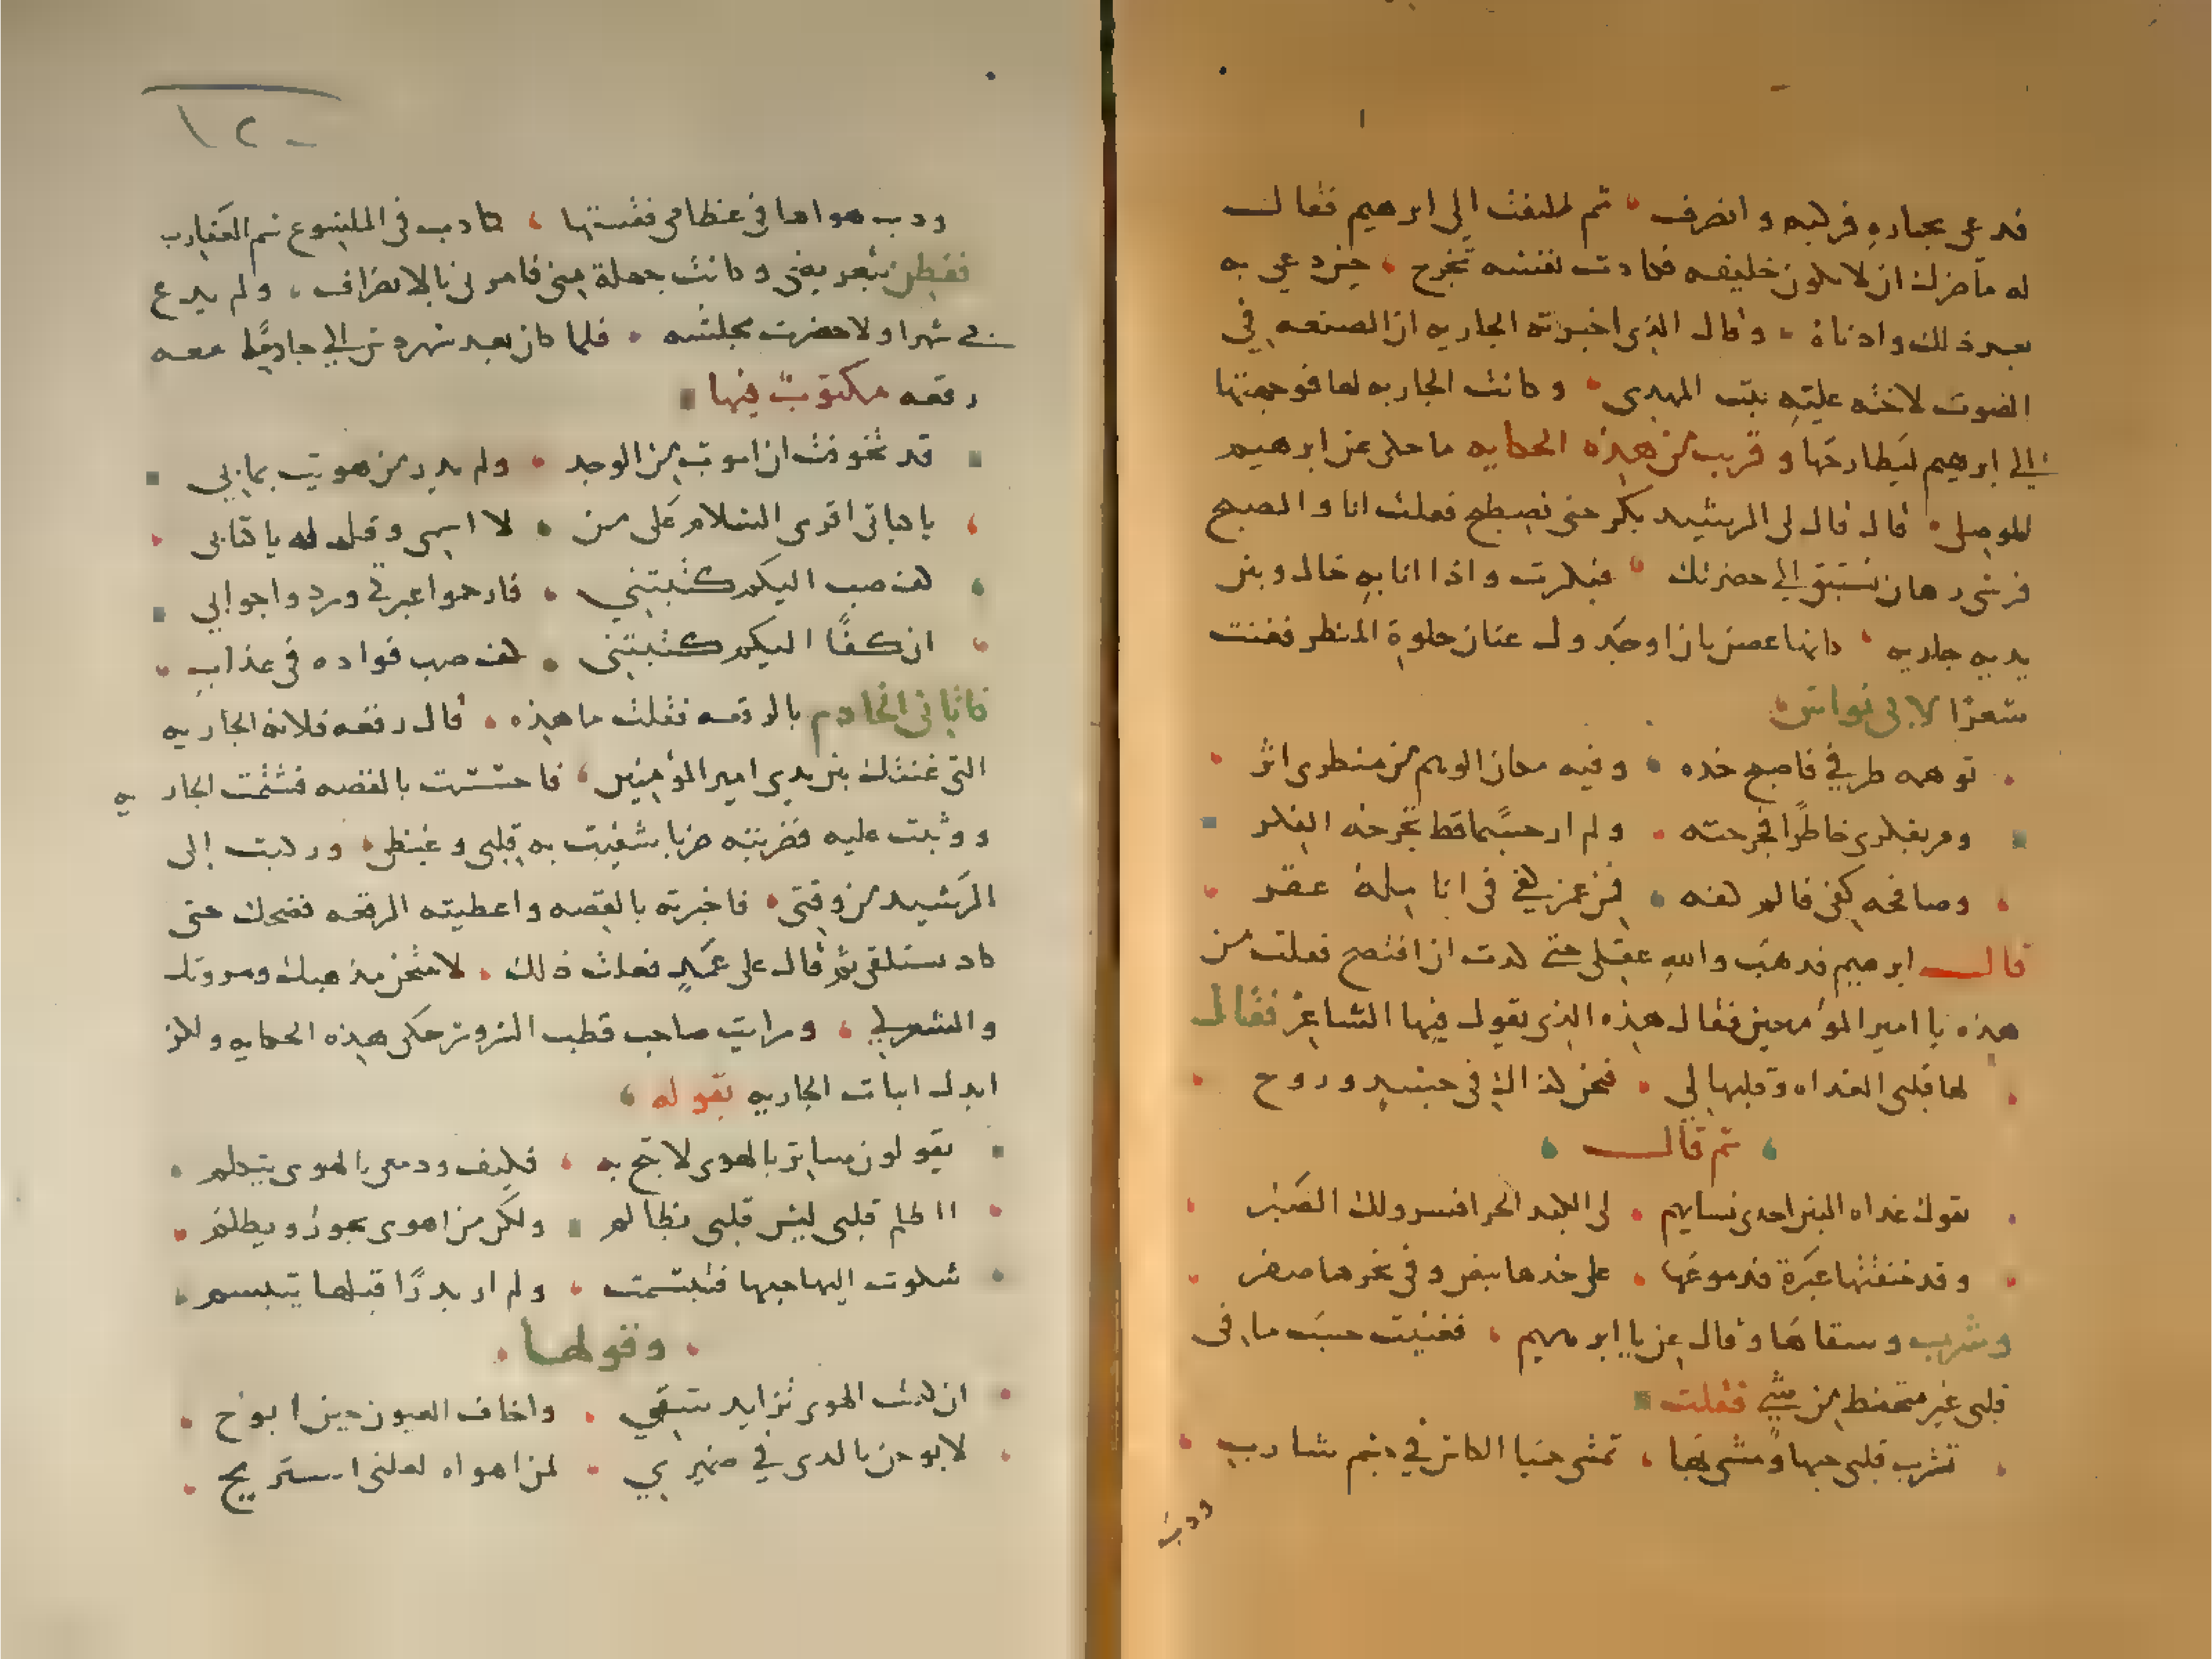 فدعى بحماره فركبه وانصرف ثم التفت الى ابرهيم فقال
له ما ضرك ان لا تكون خليفه فكادت نفسه تخرج حين دعي به
بعد ذلك وادناه وقال الذي اخبرته الجاريه ان الصنعه في
الصوت لاخته عليه بنت المهدى وكانت الجاريه لها فوجهتها
الى ابرهيم ليطارحها وقريب من هذه الحكايه ما حكى عن ابرهيم
الموصلى قال قال لى الرشيد بكر حتى نصطبح فقلت انا والصبح
فرسى رهان نستبق الى حضرتك فبكرت واذا انا به خال وبين
يديه جاريه كانها غصن بان او جدول عنان حلوة المنظر فغنت
شعرًا لابي نواس
توهمه طرفي فاصبح خده وفيه مكان الوهم من نظرى اثر
ومر بفكرى خاطرًا فجرحته ولم ار جسمًا قط يجرحه الفكر
وصافحه كفى فالم كفه فمن غمز كفي في انامله عقر
قال ابرهيم فذهب والله عقلى حتى كدت ان افتضح فقلت من
هذه يا امير المؤمنين فقال هذه الذى يقول فيها الشاعر فقال
لها قلبى الغداه وقلبها لى فنحن كذاك في جسد وروح
ثم قال
تقول غداه البين احدى نسايهم لى الكبد الحرا فسر ولك الصبر
وقد خنقتها عبرة فدموعها على خدها بيض وفى نحرها صفر
وشرب وسقاها وقال غن يا ابرهيم فغنيت حسب ما فى
قلبى غير متحفظ من شي فقلت
تشرب قلبى حبها ومشى بها تمشى حميا الكاس في جسم شارب
ودب
١٢٠
ودب هواها في عظامى فشفها كما دب فى الملسوع سم العقارب
ففطن بتعريضى وكانت جهلة منى فامرنى بالانصراف ولم يدع
بى شهرا ولا حضرت مجلسه فلما كان بعد شهر دس الى خادمًا معه
رقعه مكتوب فيها
قد تخوفت ان اموت من الوجد ولم يدر من هويت بما بى
يا كتابى اقرى السلام على من لا اسمى وقل له يا كتابى
كف صب اليكم كتبتنى فارحموا غربتى وردوا جوابي
ان كفًا اليكم كتبتنى كف صب فواده فى عذاب
فاتانى الخادم بالرقعه فقلت ما هذه قال رقعه فلانه الجاريه
التى غنتك بين يدى امير المؤمنين فاحسست بالقصه فشتمت الجاريه
ووثبت عليه فضربته ضربا شفيت به قلبى وغيظى وركبت الى
الرشيد من وقتى فاخبرته بالقصه واعطيته الرقعه فضحك حتى
كاد يستلقى ثم قال على عمد فعلت ذلك لامتحن مذهبك ومروتك
والشعر لي ورايت صاحب قطب السرور حكى هذه الحكايه ولكن
ابدل ابيات الجاريه بقوله
يقولون ساتر بالهوى لا تبح به فكيف ودمعى بالهوى يتكلم
اظلم قلبى ليس قلبى بظالم ولكن من اهوى يجور ويظلم
شكوت اليها حبها فتبسمت ولم ار بدرًا قبلها يتبسم
وقولها
ان كتمت الهوى تزايد سقمي واخاف العيون حين ابوح
لابوحن بالدى في ضميري لمن اهواه لعلنى استريح